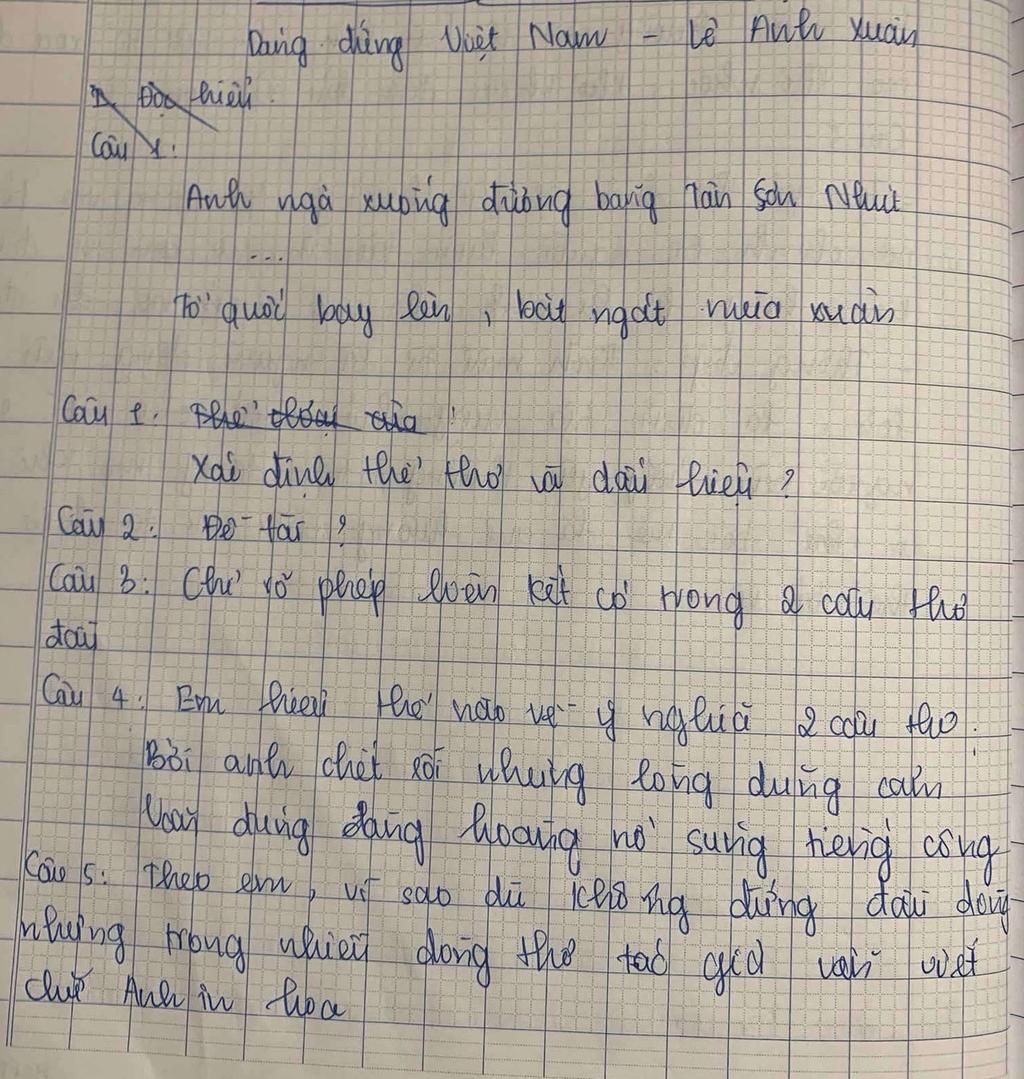 Dáng đứng Việt Nam - Lê Anh Xuân
I. Đọc hiểu.
Câu 1:
Anh ngã xuống đường băng Tân Sơn Nhứt
...
Tổ quốc bay lên, bát ngát mùa xuân
Câu 1. Thể thơ của
Xác định thể thơ và dấu hiệu?
Câu 2: Đề tài?
Câu 3: Chỉ rõ phép liên kết có trong 2 câu thơ
đầu
Câu 4: Em hiểu thế nào về ý nghĩa 2 câu thơ:
Bởi anh chết rồi nhưng lòng dũng cảm
Vẫn đứng đàng hoàng nổ súng tiến công
Câu 5: Theo em, vì sao dù không đứng đầu dòng
nhưng trong nhiều dòng thơ tác giả vẫn viết
chữ Anh in hoa